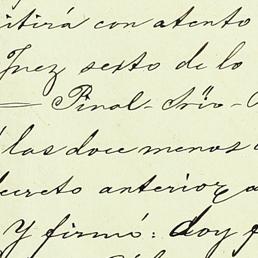 itirá con atento
Juez sexto de lo
= Pinal- Trío-
las doce menos
decreto anterior,
Y firmó: doy f